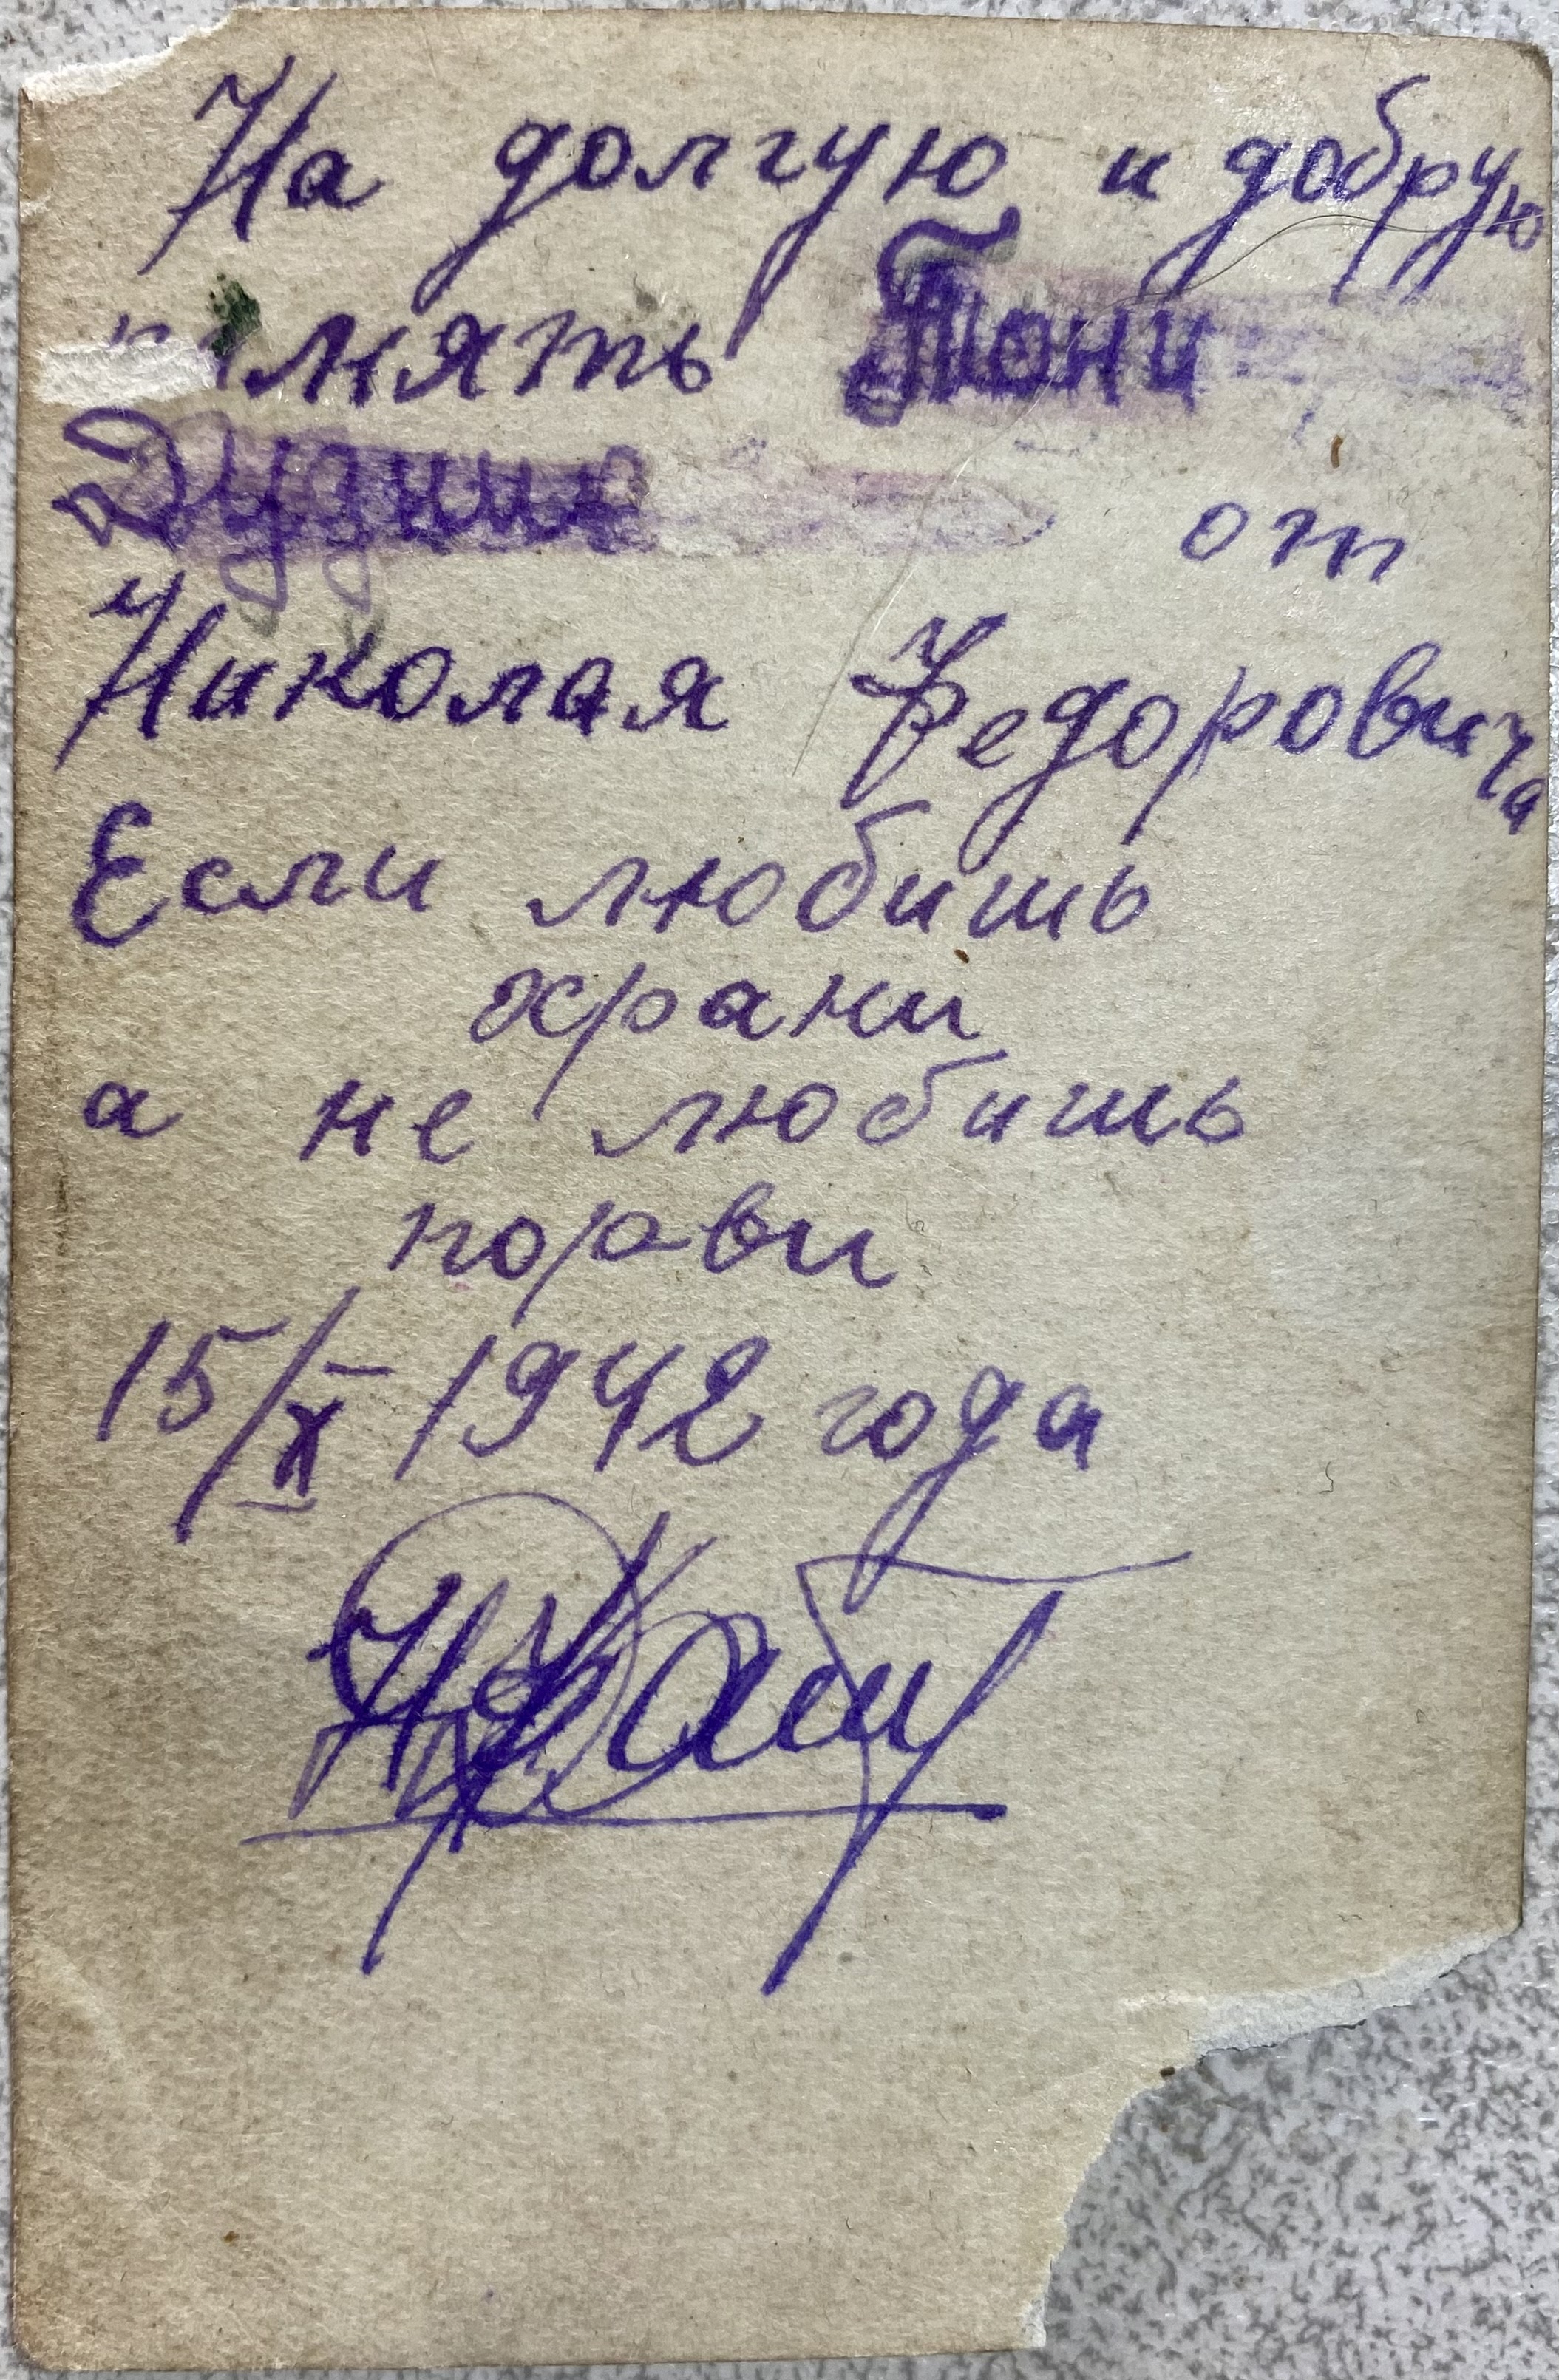 На долгую и добрую
память Тони
от
Николая Федоровича
Если любишь
храни
а не любишь
порви
15/X 1942 года